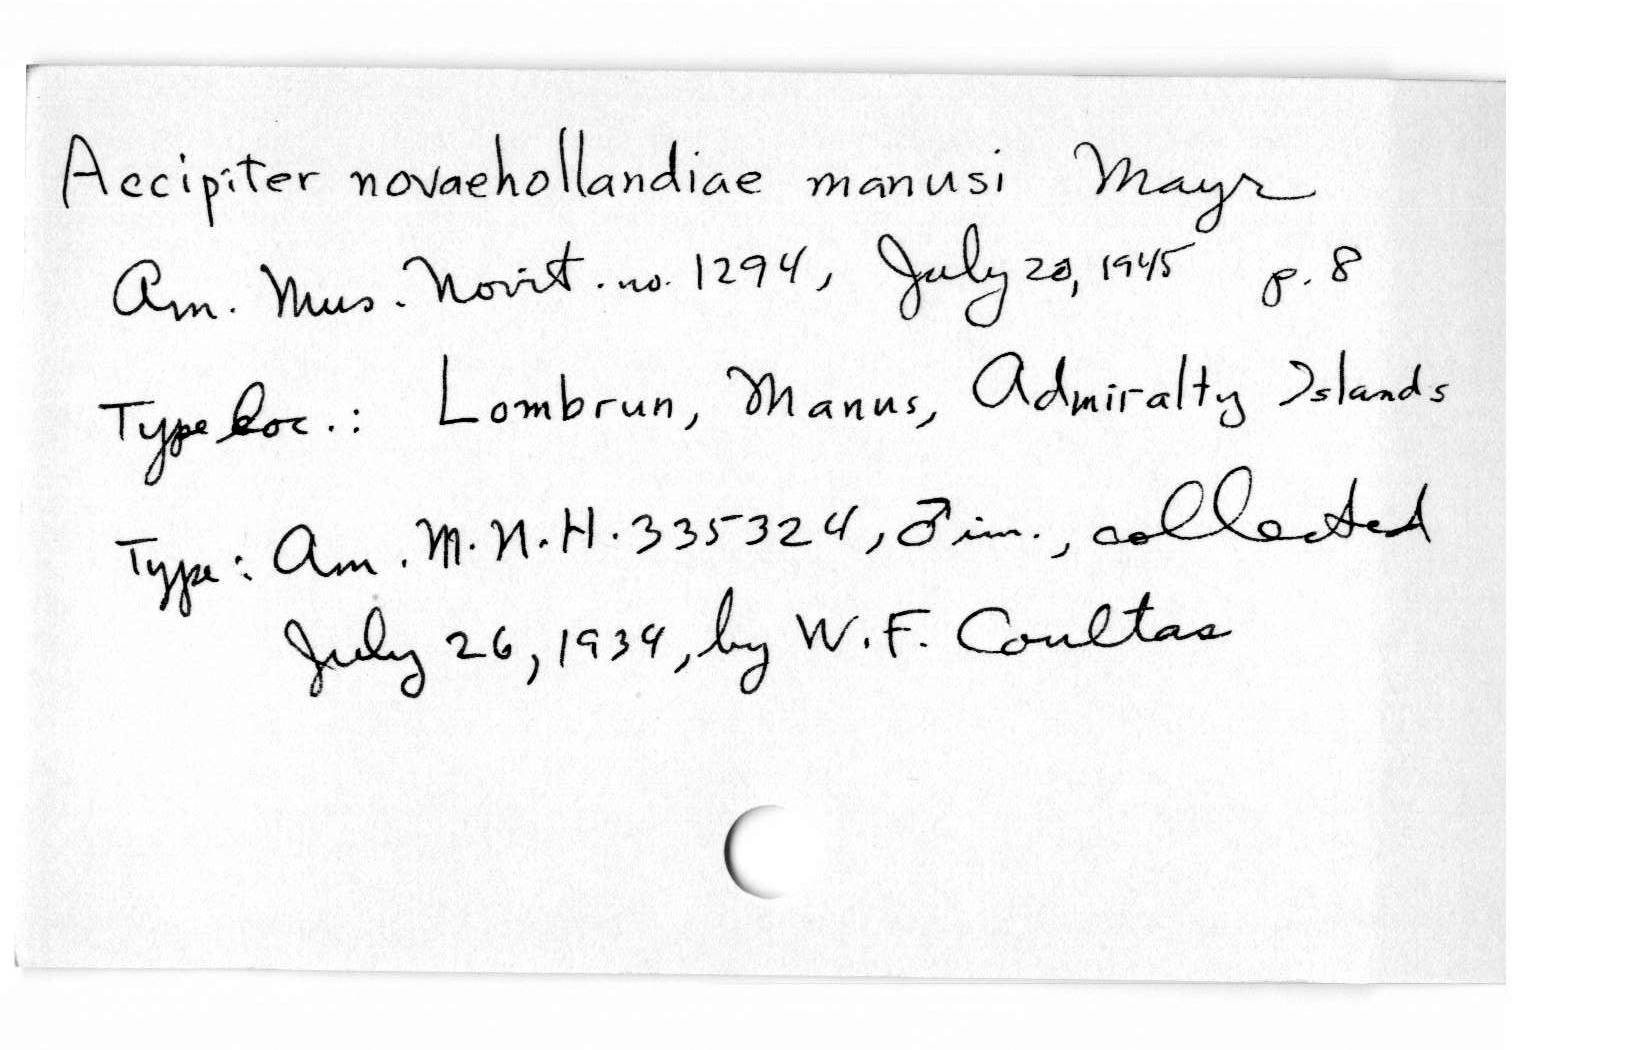 Accipiter novaehollandiae manusi Mayr
Am. Mus. Novit. no. 1294, July 20, 1945 p. 8
Type loc.: Lombrun, Manus, Admiralty Islands
Type: Am. M. N. H. 335324, ♂ im., collected
July 26, 1934, by W. F. Coultas